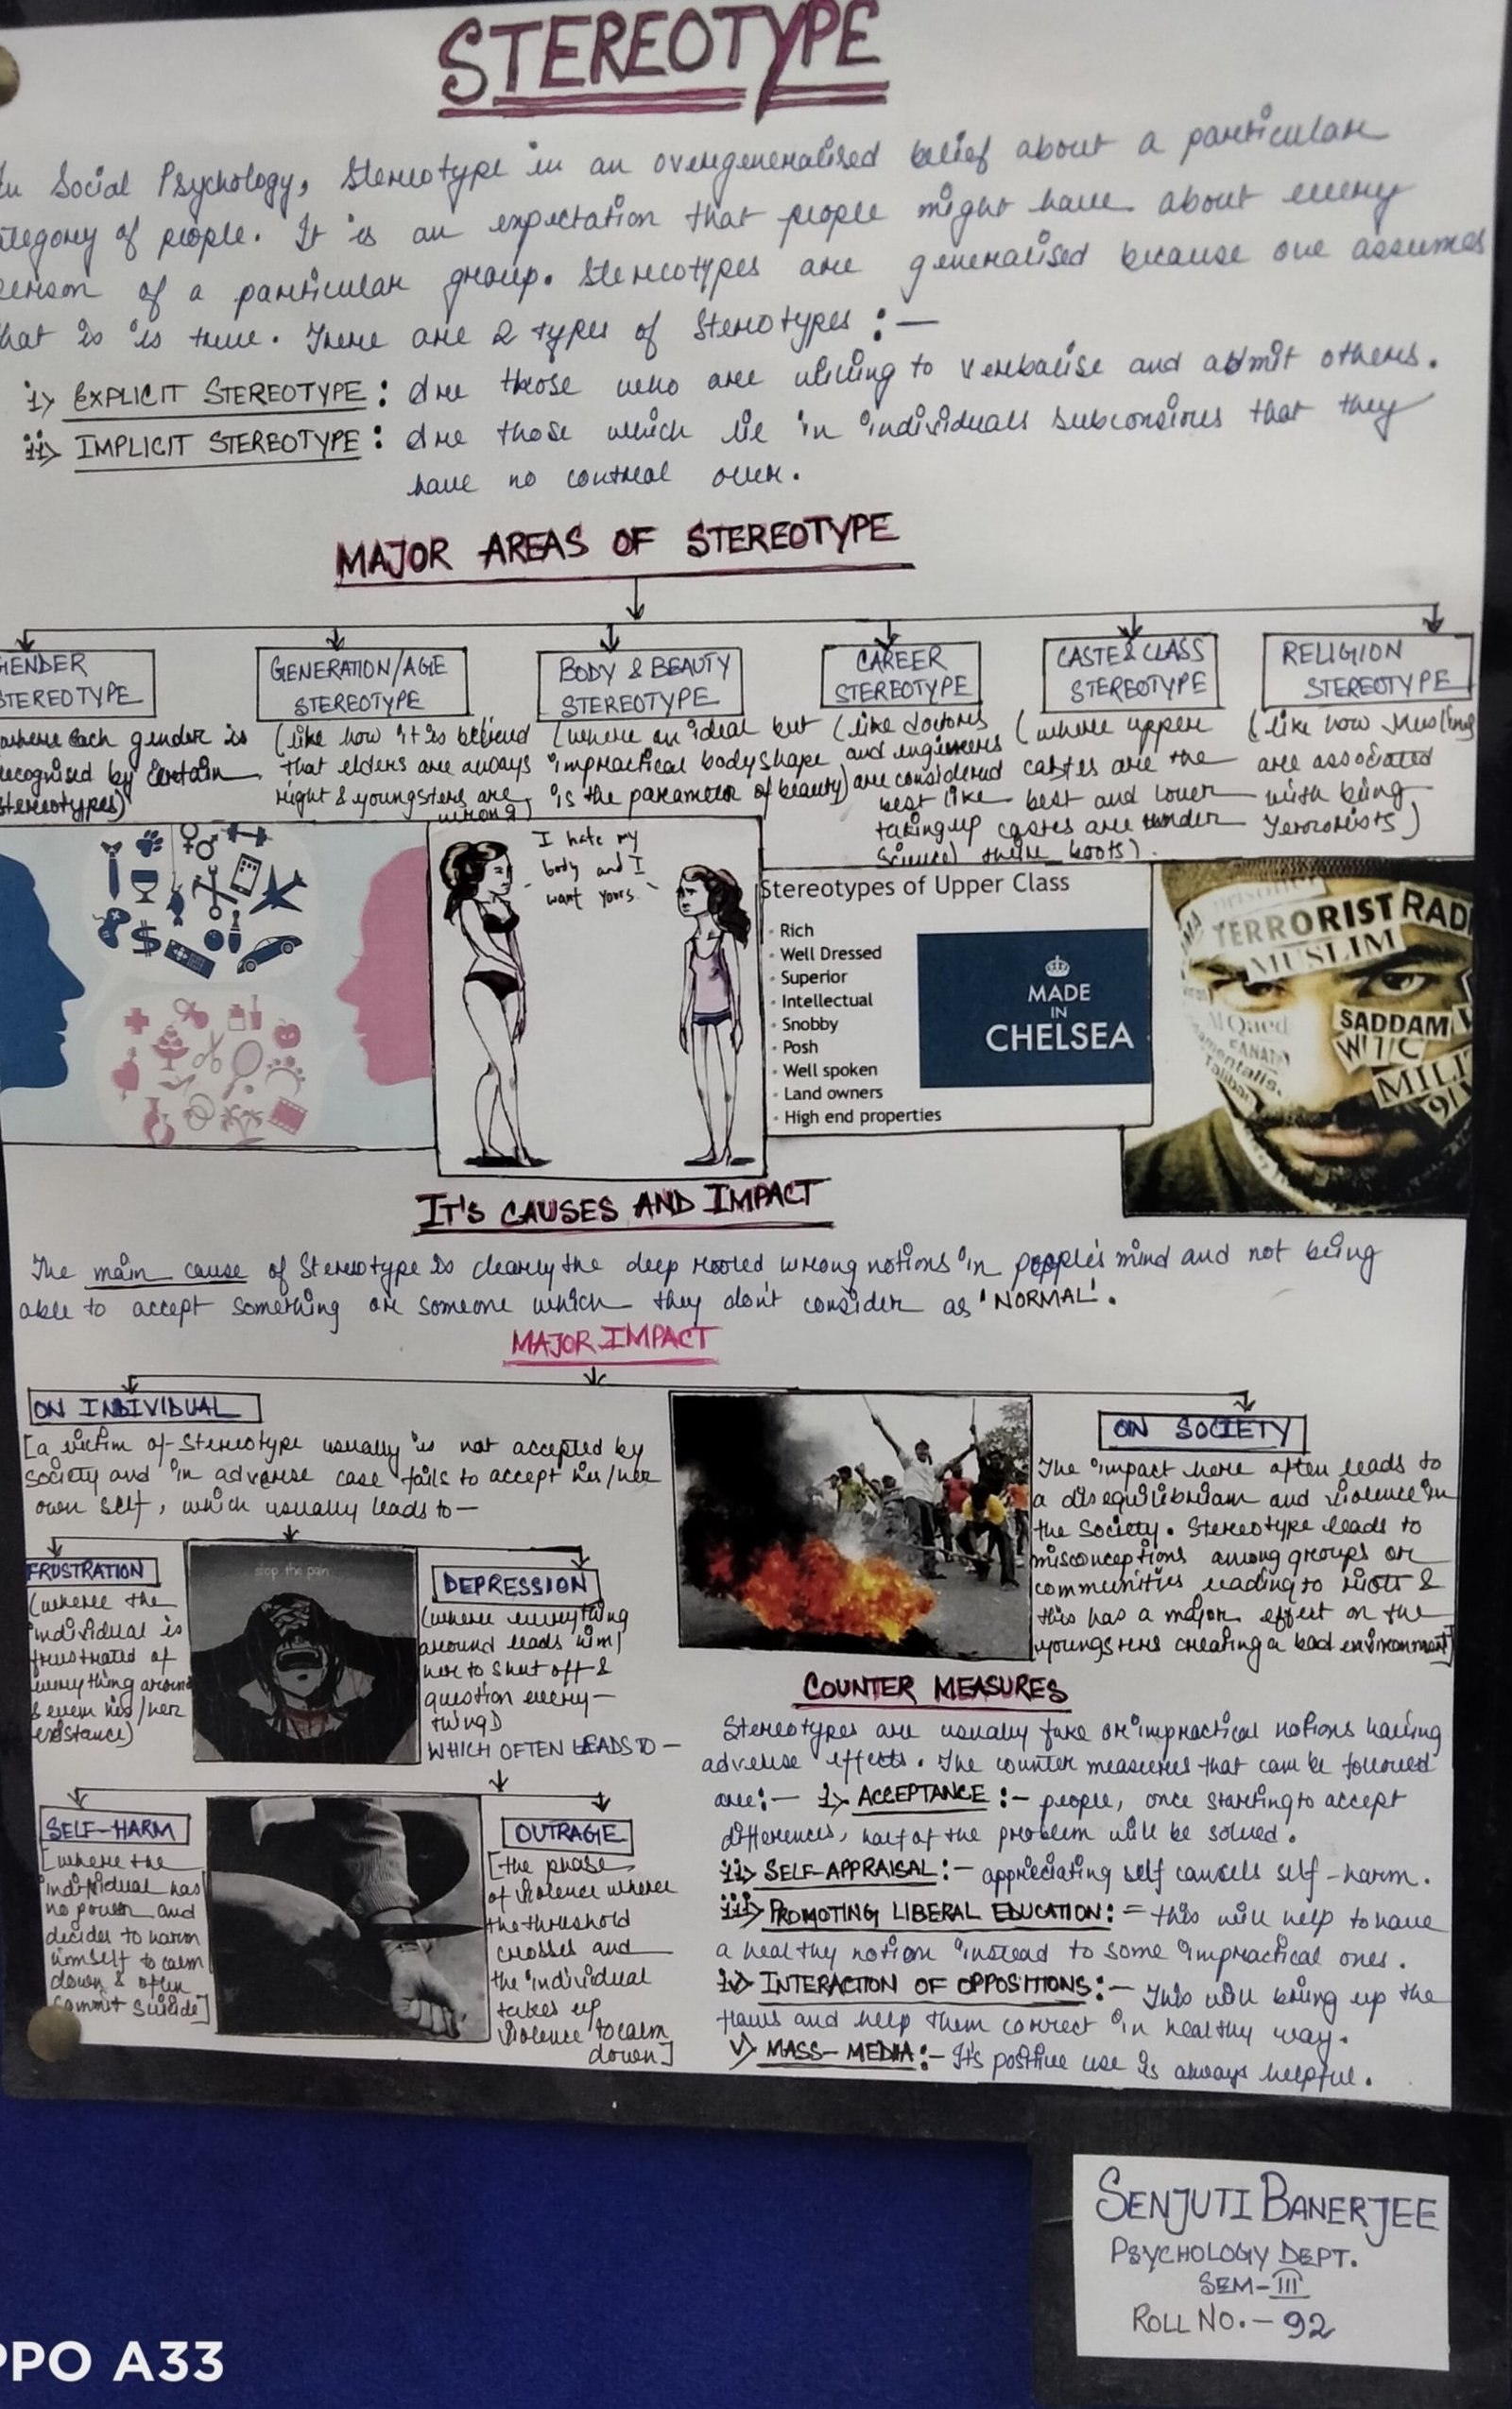 STEREOTYPE
In Social Psychology, Stereotype in an overgeneralised belief about a particular
ategory of people. It is an expectation that people might have about every
erson of a particular group. Stereotypes are generalised because one assumes
hat is is true. There are 2 types of Sterotypes :—
i> EXPLICIT STEREOTYPE : Are those who are willing to verbalise and admit others.
ii> IMPLICIT STEREOTYPE : Are those which lie in individuals subconsious that they
have no control over.
MAJOR AREAS OF STEREOTYPE
GENDER
STEREOTYPE
where each gender is
recognised by certain
stereotypes)
GENERATION/AGE
STEREOTYPE
(like how it is believed
that elders are always
right & youngsters are
wrong)
BODY & BEAUTY
STEREOTYPE
(where an ideal but
impractical bodyshape
is the parameter of beauty)
CAREER
STEREOTYPE
(like doctors
and engineers
are considered
best like
taking up
Science)
CASTE & CLASS
STEREOTYPE
(where upper
castes are the
best and lower
castes are under
their boots).
RELIGION
STEREOTYPE
(like how Muslims
are associated
with being
Terrorists)
I hate my
body and I
want yours.
Stereotypes of Upper Class
• Rich
• Well Dressed
• Superior
• Intellectual
• Snobby
• Posh
• Well spoken
• Land owners
• High end properties
MADE
IN
CHELSEA
TERRORIST RAD
MUSLIM
SADDAM
WTC
MILI
9/
Al Qaed
FANAT
mentalis.
Taliban
IT'S CAUSES AND IMPACT
The main cause of Stereotype is clearly the deep rooted wrong notions in people's mind and not being
able to accept something or someone which they don't consider as 'NORMAL'.
MAJOR IMPACT
ON INDIVIDUAL
[a victim of Stereotype usually is not accepted by
society and in adverse case fails to accept his/her
own self, which usually leads to —
FRUSTRATION
(where the
individual is
frustrated of
everything around
& even his/her
existance)
stop the pain
DEPRESSION
(where everything
around leads him/
her to shut off &
question every-
thing)
WHICH OFTEN LEADS TO —
SELF-HARM
[where the
individual has
no power and
decides to harm
himself to calm
down & often
commit suicide]
OUTRAGE
[the phase
of violence where
the threshold
crosses and
the individual
takes up
violence to calm
down]
ON SOCIETY
The impact here often leads to
a disequilibrium and violence in
the society. Stereotype leads to
misconceptions among groups or
communities leading to riots &
this has a major effect on the
youngsters creating a bad environment]
COUNTER MEASURES
Stereotypes are usually fake or impractical notions having
adverse effects. The counter measures that can be followed
are:— i> ACCEPTANCE :— people, once starting to accept
differences, half of the problem will be solved.
ii> SELF-APPRAISAL :— appreciating self cancels self-harm.
iii> PROMOTING LIBERAL EDUCATION := this will help to have
a healthy notion instead to some impractical ones.
iv> INTERACTION OF OPPOSITIONS :— This will bring up the
flaws and help them correct in healthy way.
v> MASS-MEDIA :— It's positive use is always helpful.
SENJUTI BANERJEE
PSYCHOLOGY DEPT.
SEM-III
ROLL NO.- 92
PPO A33